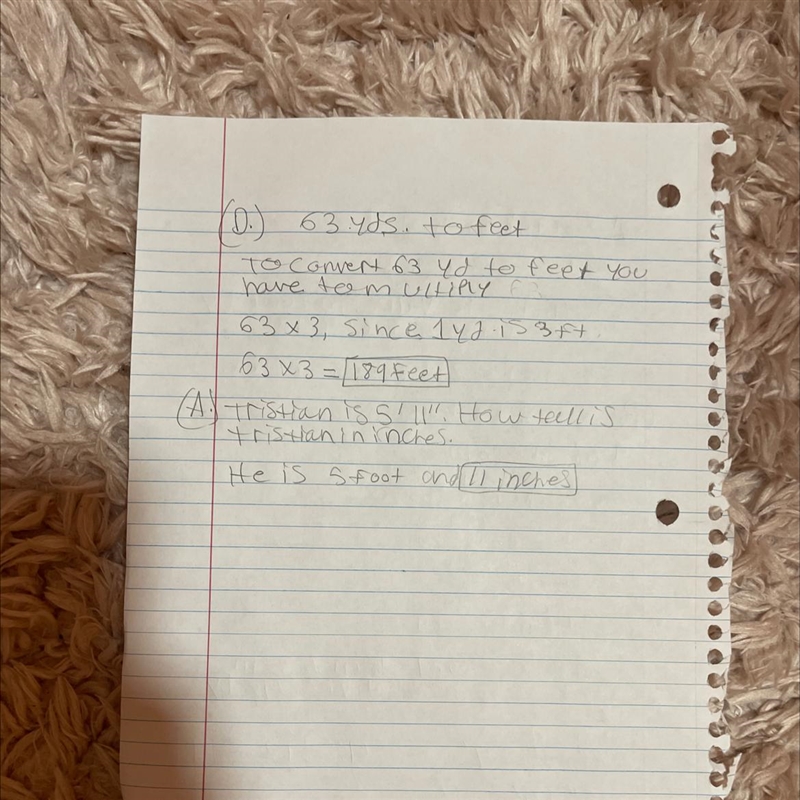 (D.) 63 yds. to feet
To convert 63 yd to feet you
have to multiply
63 x 3, since 1yd. is 3ft.
63 x 3 = 189 feet
(A.) Tristian is 5' 11". How tall is
tristian in inches.
He is 5 foot and 11 inches